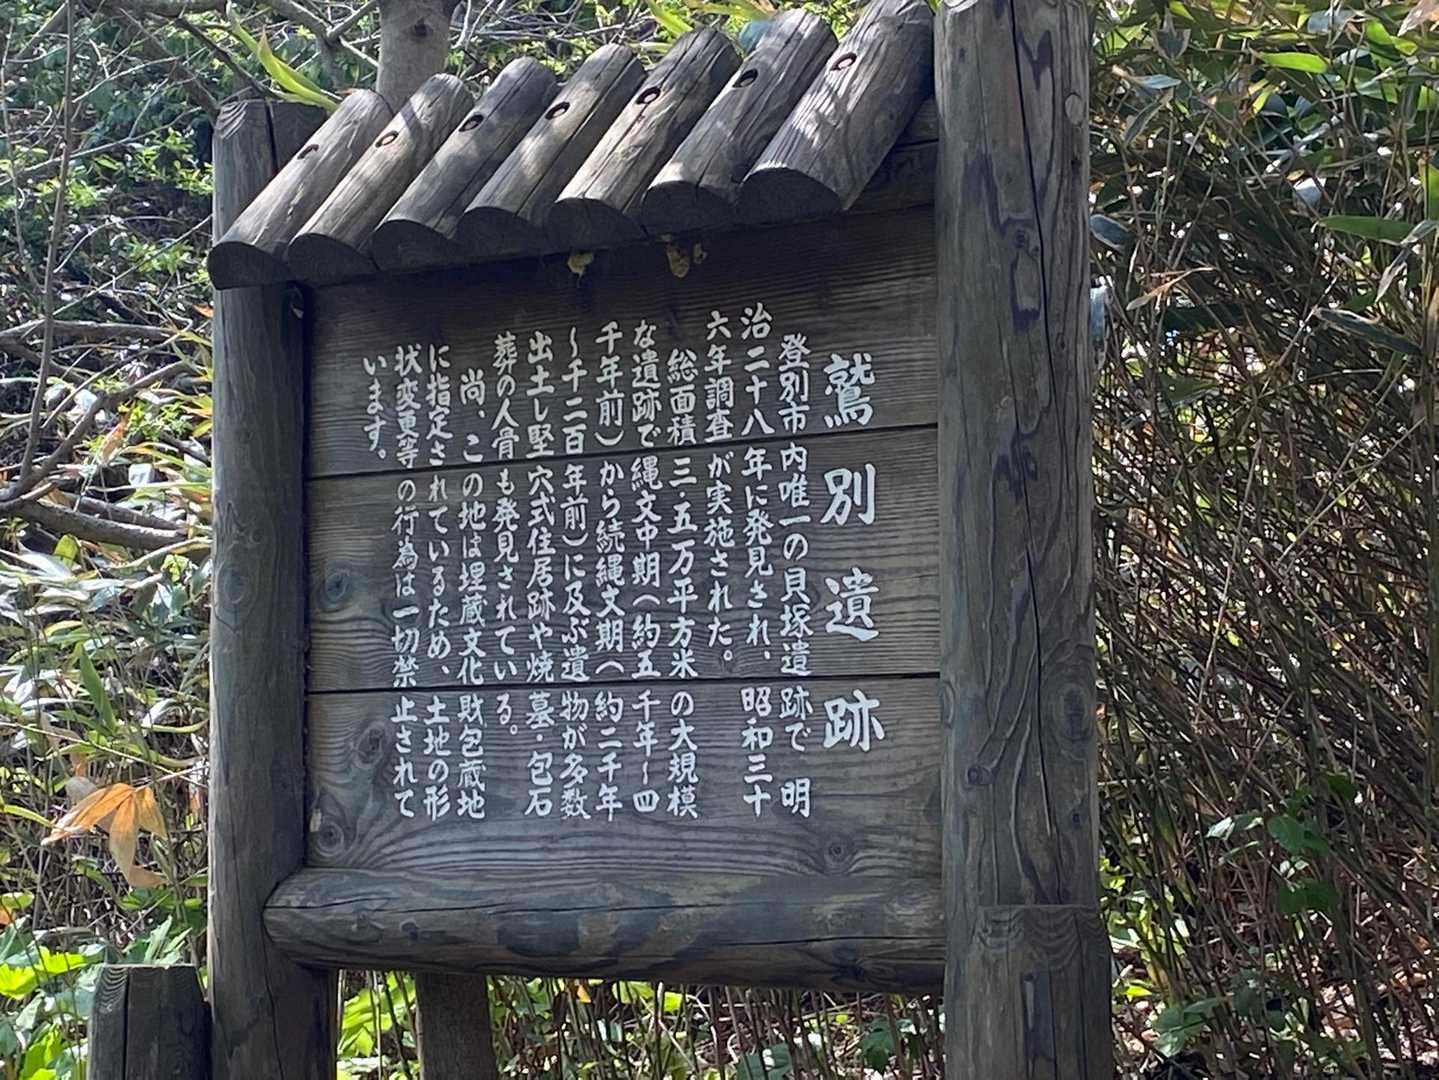 鷲別遺跡
登別市内唯一の貝塚遺跡で 明
治二十八年に発見され、昭和三十
六年調査が実施された。
総面積三・五万平方米の大規模
な遺跡で縄文中期(約五千年~四
千年前)から続縄文期(約二千年
~千二百年前)に及ぶ遺物が多数
出土し堅穴式住居跡や焼墓・包石
葬の人骨も発見されている。
尚、この地は埋蔵文化財包蔵地
に指定されているため、土地の形
状変更等の行為は一切禁止されて
います。